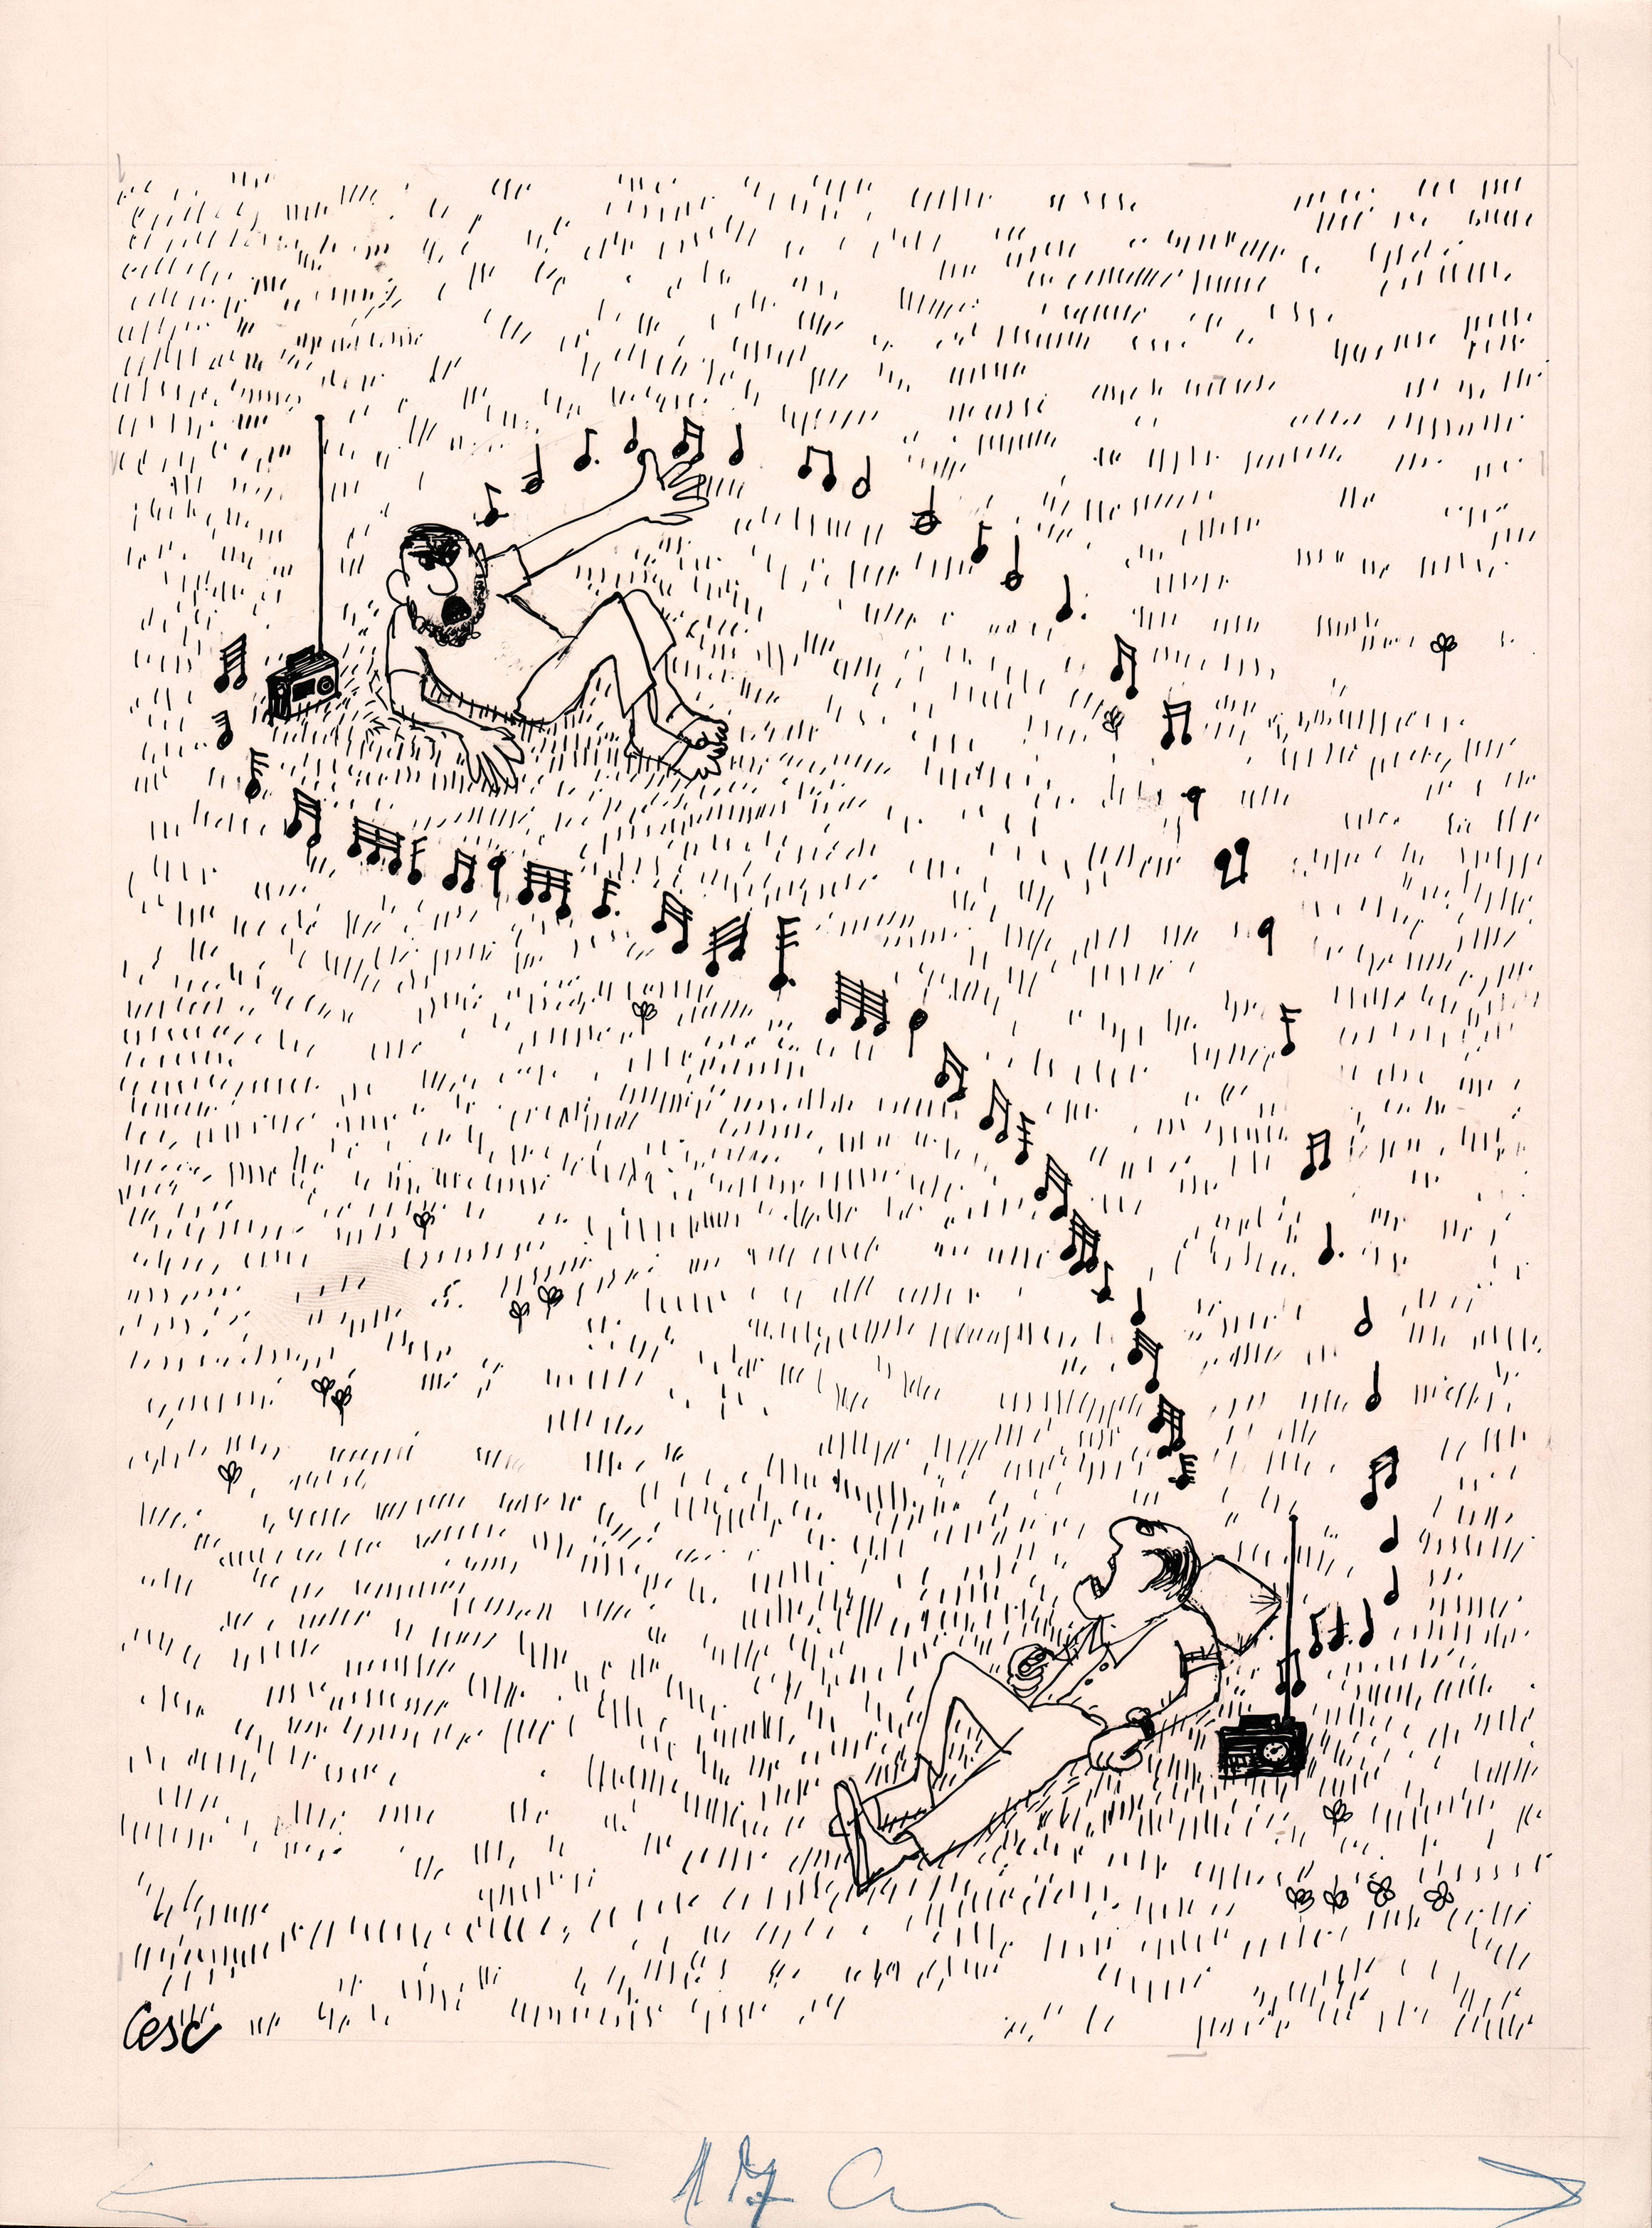 Cesc
17 C